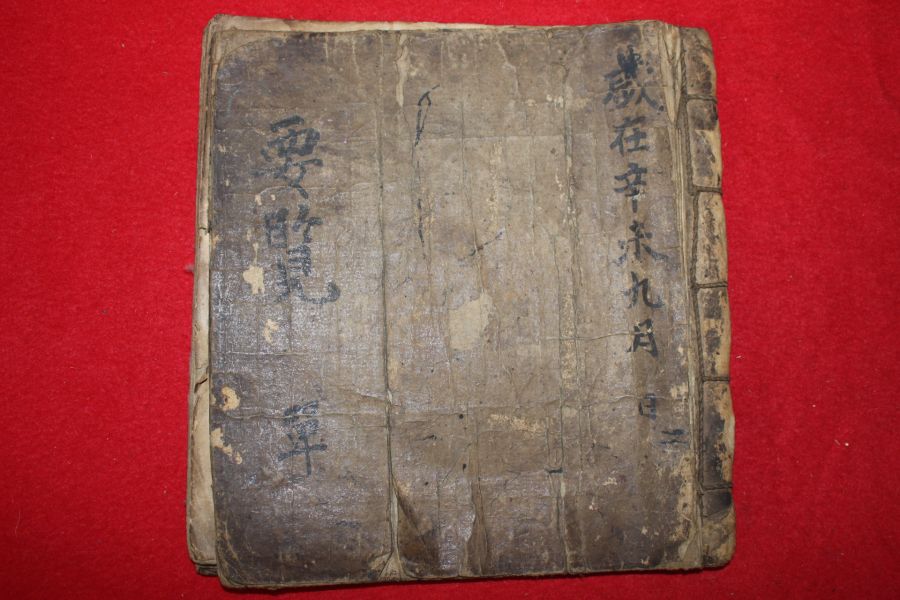 歲在辛未九月 日
要覽 單